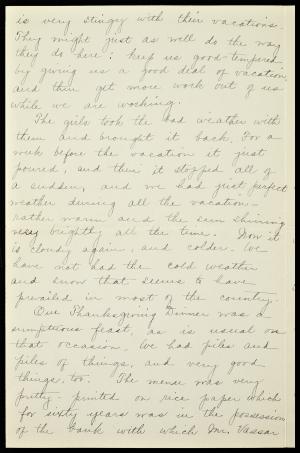 is very stingy with their vacations.
They might just as well do the way
they do here: keep us good-tempered
by giving us a good deal of vacation,
and then get more work out of us
while we are working.
The girls took the bad weather with
them and brought it back. For a
week before the vacation it just
poured, and then it stopped all of
a sudden, and we had just perfect
weather during all the vacation -
rather warm and the sun shining
very brightly all the time. Now it
is cloudy again, and colder. We
have not had the cold weather
and snow that seems to have
prevailed in most of the country.
Our Thanksgiving Dinner was a
sumptuous feast, as is usual on
that occasion. We had piles and
piles of things, and very good
things, too. The menu was very
pretty - printed on rice paper which
for sixty years was in the possession
of the bank with which Mr. Vassar